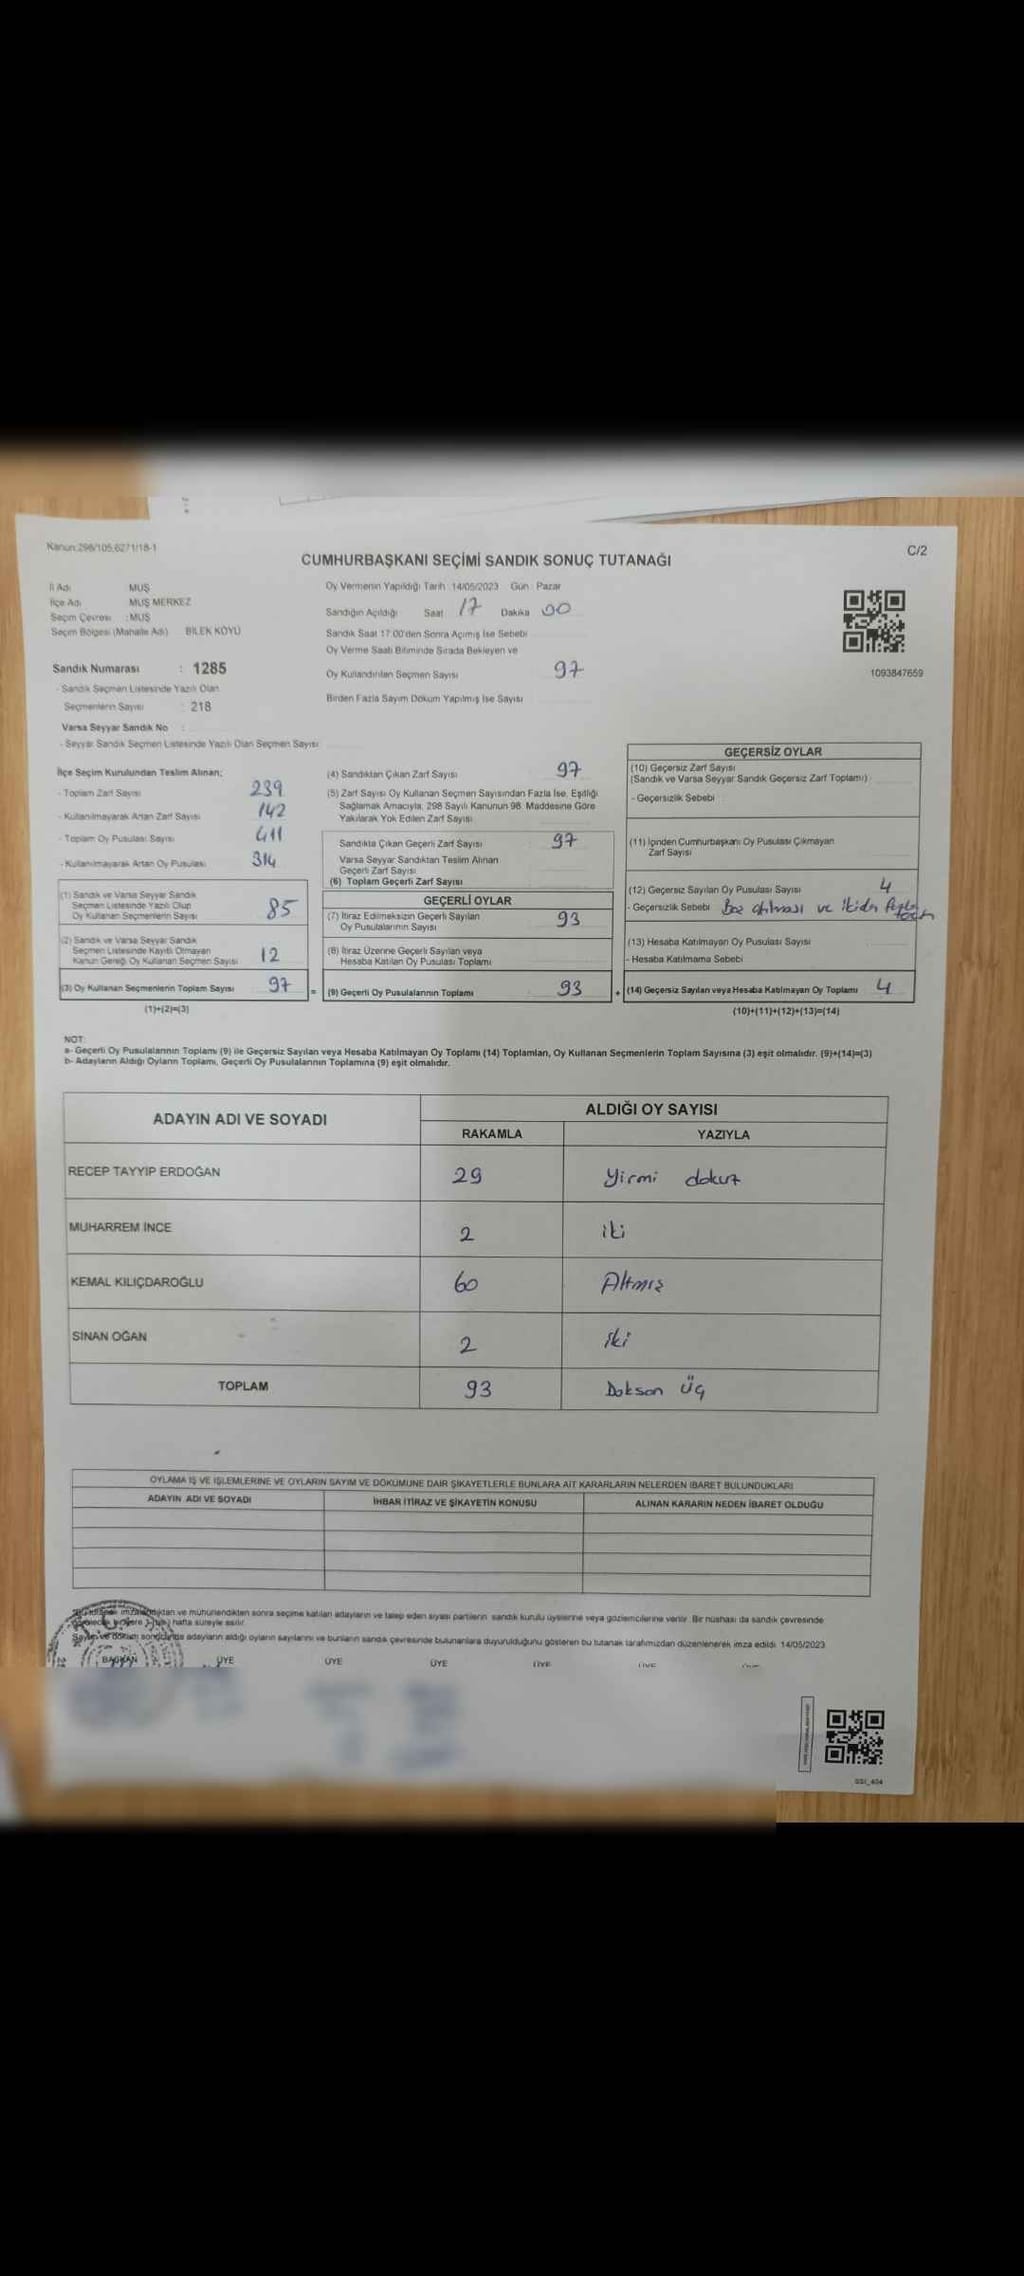 Kanun:298/105,6271/18-1
C/2
CUMHURBAŞKANI SEÇİMİ SANDIK SONUÇ TUTANAĞI
İl Adı : MUŞ
İlçe Adı : MUŞ MERKEZ
Seçim Çevresi : MUŞ
Seçim Bölgesi (Mahalle Adı) BİLEK KÖYÜ
Sandık Numarası : 1285
- Sandık Seçmen Listesinde Yazılı Olan
Seçmenlerin Sayısı : 218
Varsa Seyyar Sandık No :
- Seyyar Sandık Seçmen Listesinde Yazılı Olan Seçmen Sayısı
Oy Vermenin Yapıldığı Tarih : 14/05/2023 Gün : Pazar
Sandığın Açıldığı Saat 17 Dakika 00
Sandık Saat 17.00'den Sonra Açılmış İse Sebebi
Oy Verme Saati Bitiminde Sırada Bekleyen ve
Oy Kullandırılan Seçmen Sayısı 97
Birden Fazla Sayım Döküm Yapılmış İse Sayısı
1093847659
İlçe Seçim Kurulundan Teslim Alınan;
- Toplam Zarf Sayısı 239
- Kullanılmayarak Artan Zarf Sayısı 142
- Toplam Oy Pusulası Sayısı 411
- Kullanılmayarak Artan Oy Pusulası 314
(1) Sandık ve Varsa Seyyar Sandık
Seçmen Listesinde Yazılı Olup
Oy Kullanan Seçmenlerin Sayısı 85
(2) Sandık ve Varsa Seyyar Sandık
Seçmen Listesinde Kayıtlı Olmayan
Kanun Gereği Oy Kullanan Seçmen Sayısı 12
(3) Oy Kullanan Seçmenlerin Toplam Sayısı 97
(1)+(2)=(3)
=
(4) Sandıktan Çıkan Zarf Sayısı 97
(5) Zarf Sayısı Oy Kullanan Seçmen Sayısından Fazla İse, Eşitliği
Sağlamak Amacıyla, 298 Sayılı Kanunun 98. Maddesine Göre
Yakılarak Yok Edilen Zarf Sayısı
Sandıkta Çıkan Geçerli Zarf Sayısı 97
Varsa Seyyar Sandıktan Teslim Alınan
Geçerli Zarf Sayısı
(6) Toplam Geçerli Zarf Sayısı
GEÇERLİ OYLAR
(7) İtiraz Edilmeksizin Geçerli Sayılan
Oy Pusulalarının Sayısı 93
(8) İtiraz Üzerine Geçerli Sayılan veya
Hesaba Katılan Oy Pusulası Toplamı
(9) Geçerli Oy Pusulalarının Toplamı 93
+
GEÇERSİZ OYLAR
(10) Geçersiz Zarf Sayısı
(Sandık ve Varsa Seyyar Sandık Geçersiz Zarf Toplamı)
- Geçersizlik Sebebi
(11) İçinden Cumhurbaşkanı Oy Pusulası Çıkmayan
Zarf Sayısı
(12) Geçersiz Sayılan Oy Pusulası Sayısı 4
- Geçersizlik Sebebi Boş atılması ve ikiden fazla
(13) Hesaba Katılmayan Oy Pusulası Sayısı
- Hesaba Katılmama Sebebi
(14) Geçersiz Sayılan veya Hesaba Katılmayan Oy Toplamı 4
(10)+(11)+(12)+(13)=(14)
NOT:
a- Geçerli Oy Pusulalarının Toplamı (9) ile Geçersiz Sayılan veya Hesaba Katılmayan Oy Toplamı (14) Toplamları, Oy Kullanan Seçmenlerin Toplam Sayısına (3) eşit olmalıdır. (9)+(14)=(3)
b- Adayların Aldığı Oyların Toplamı, Geçerli Oy Pusulalarının Toplamına (9) eşit olmalıdır.
ADAYIN ADI VE SOYADI
ALDIĞI OY SAYISI
RAKAMLA YAZIYLA
RECEP TAYYİP ERDOĞAN 29 Yirmi dokuz
MUHARREM İNCE 2 iki
KEMAL KILIÇDAROĞLU 60 Altmış
SİNAN OĞAN 2 iki
TOPLAM 93 Doksan Üç
OYLAMA İŞ VE İŞLEMLERİNE VE OYLARIN SAYIM VE DÖKÜMÜNE DAİR ŞİKAYETLERLE BUNLARA AİT KARARLARIN NELERDEN İBARET BULUNDUKLARI
ADAYIN ADI VE SOYADI İHBAR İTİRAZ VE ŞİKAYETİN KONUSU ALINAN KARARIN NEDEN İBARET OLDUĞU
imzalandıktan ve mühürlendikten sonra seçime katılan adayların ve talep eden siyasi partilerin sandık kurulu üyelerine veya gözlemcilerine verilir. Bir nüshası da sandık çevresinde
hafta süreyle asılır.
Sayım ve döküm sonucunda adayların aldığı oyların sayılarını ve bunların sandık çevresinde bulunanlara duyurulduğunu gösteren bu tutanak tarafımızdan düzenlenerek imza edildi. 14/05/2023
BAŞKAN ÜYE ÜYE ÜYE ÜYE ÜYE
SSI_404